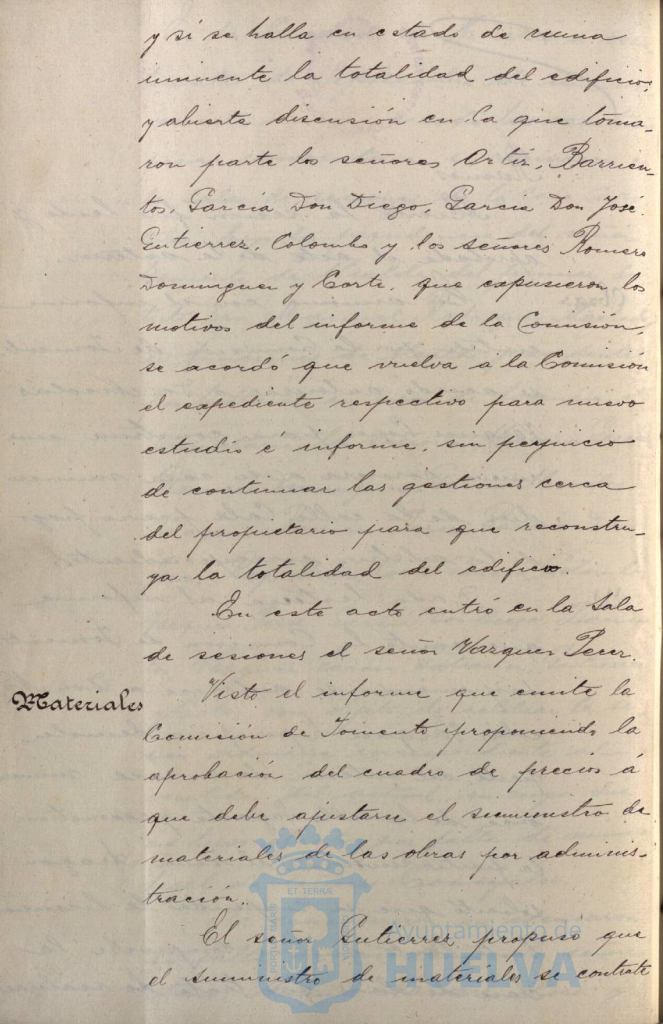 y si se halla en estado de ruina
iminente la totalidad del edificio,
y abierta discusión en la que toma-
ron parte los señores Ortiz, Barrien-
tos, García Don Diego, García Don José
Gutierrez, Colombo y los señores Romero
Dominguez y Corte, que expusieron los
motivos del informe de la Comisión,
se acordó que vuelva a la Comisión
el expediente respectivo para nuevo
estudio é informe, sin perjuicio
de continuar las gestiones cerca
del propietario para que reconstru-
ya la totalidad del edificio.
En este acto entró en la Sala
de sesiones el señor Vazquez Perez.
Materiales
Visto el informe que emite la
Comisión de Fomento proponiendo la
aprobación del cuadro de precios á
que debe ajustarse el suministro de
materiales de las obras por adminis-
tración.
El señor Gutierrez propuso que
el suministro de materiales se contrate
ET TERRÆ
Ayuntamiento de
HUELVA